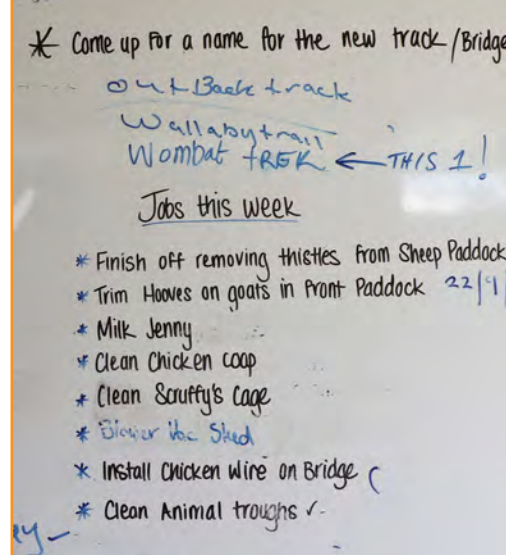 * Come up for a name for the new track / Bridge
outBack track
Wallaby trail
Wombat tREK ← THIS 1!
Jobs this week
* Finish off removing thistles from Sheep Paddock
* Trim Hooves on goats in front Paddock 22/9/
* Milk Jenny
* Clean Chicken coop
* Clean Scruffy's Cage
* Shed
* Install Chicken Wire on Bridge
* Clean Animal troughs ✓